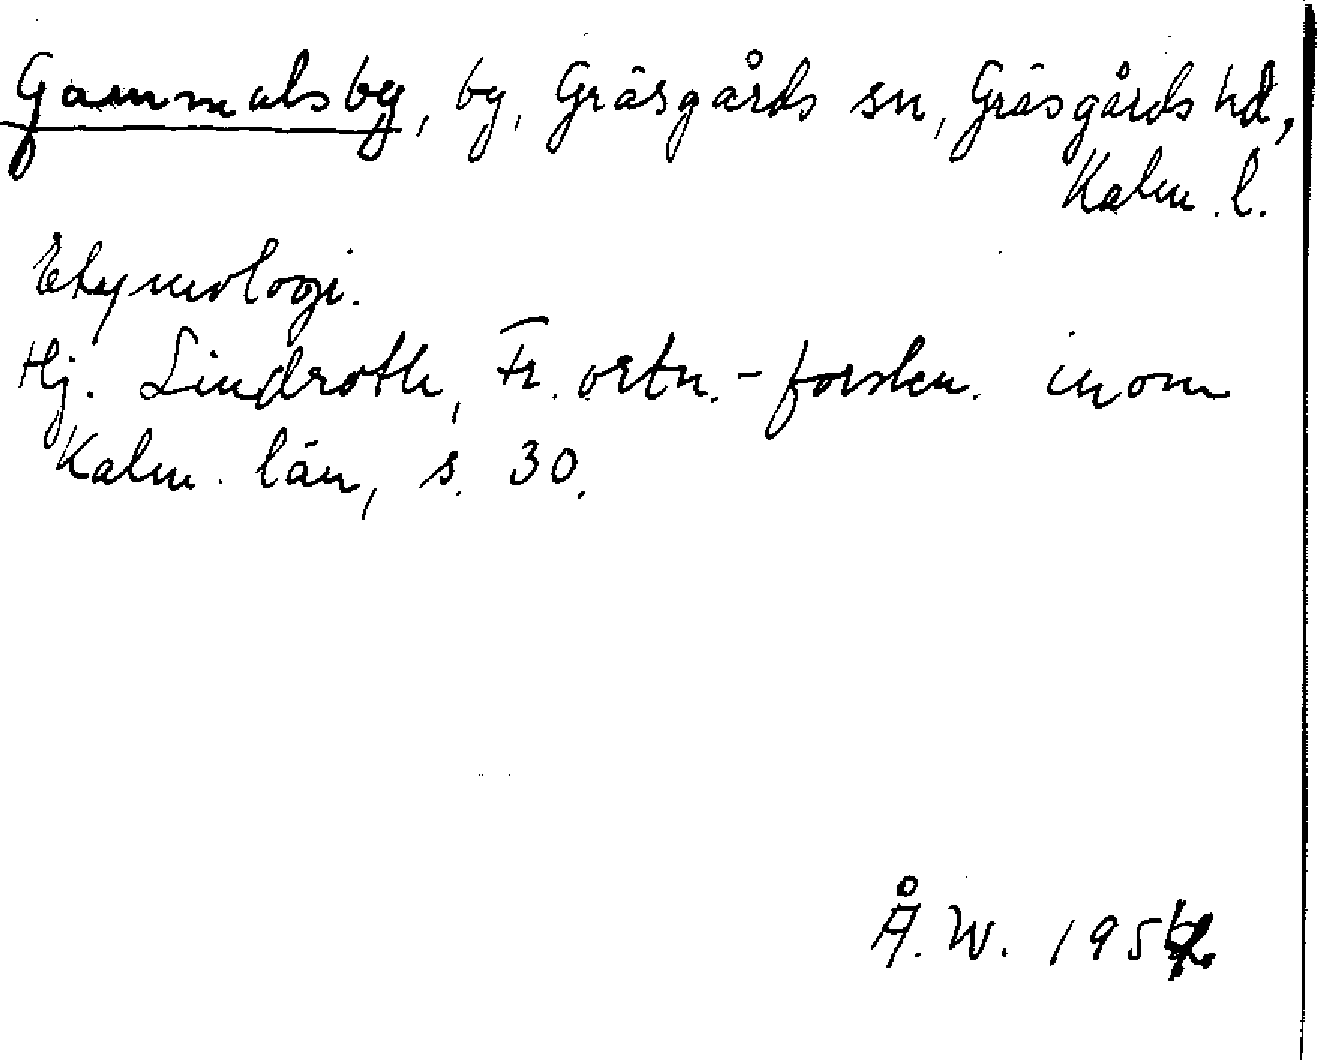 Gammalsby, by, Gräsgårds sn, Gräsgårds hd,
Kalm. l.
Etymologi.
Hj. Lindroth, Fr. ortn.-forskn. inom
Kalm. län, s. 30.
Å. W.